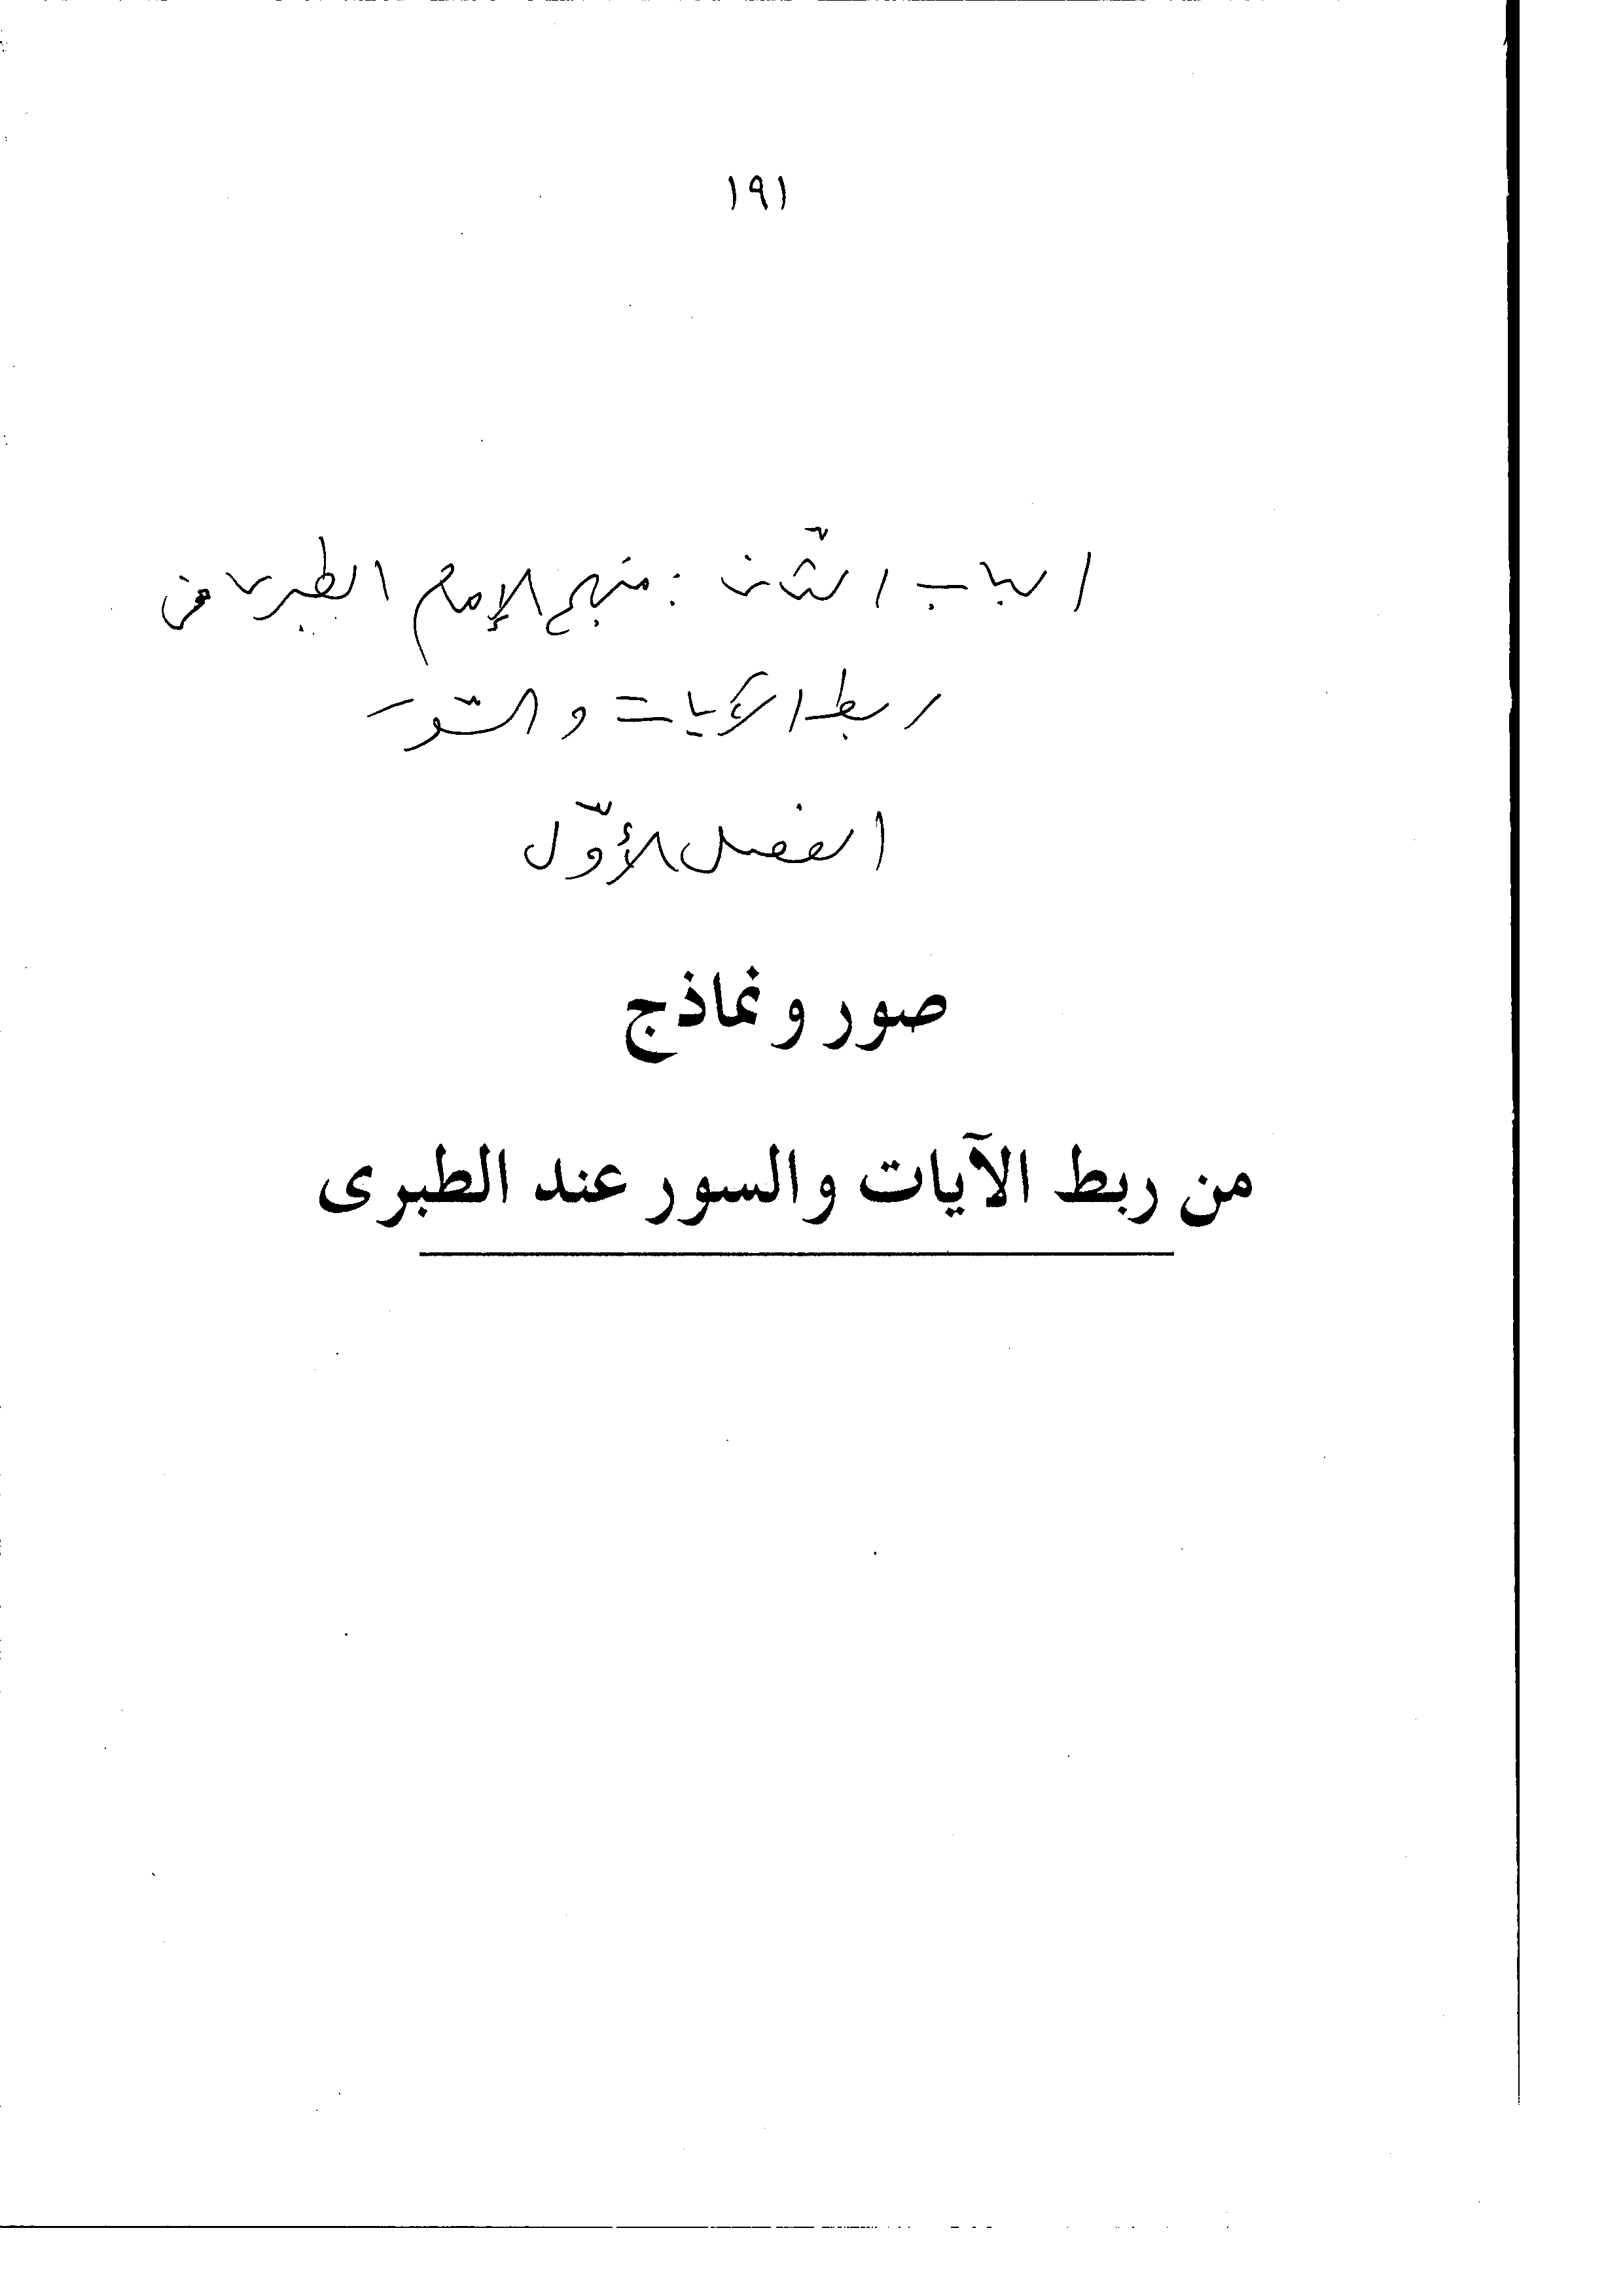 ١٩١
الباب الثّانى : منهج الإمام الطبرى فى
ربط الآيات والسّور
الفصل الأوّل
صور ونماذج
من ربط الآيات والسور عند الطبرى